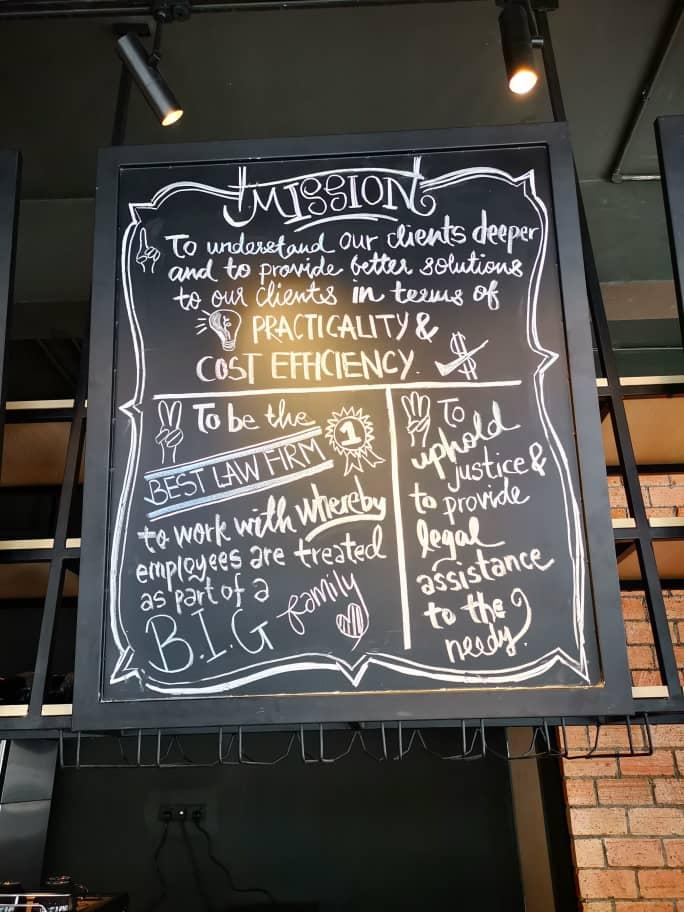 MISSION
To understand our clients deeper
and to provide better solutions
to our clients in terms of
PRACTICALITY &
COST EFFICIENCY.
To be the
BEST LAW FIRM
1
to work with whereby
employees are treated
as part of a
B.I.G family
To
uphold
justice &
to provide
legal
assistance
to the
needy.